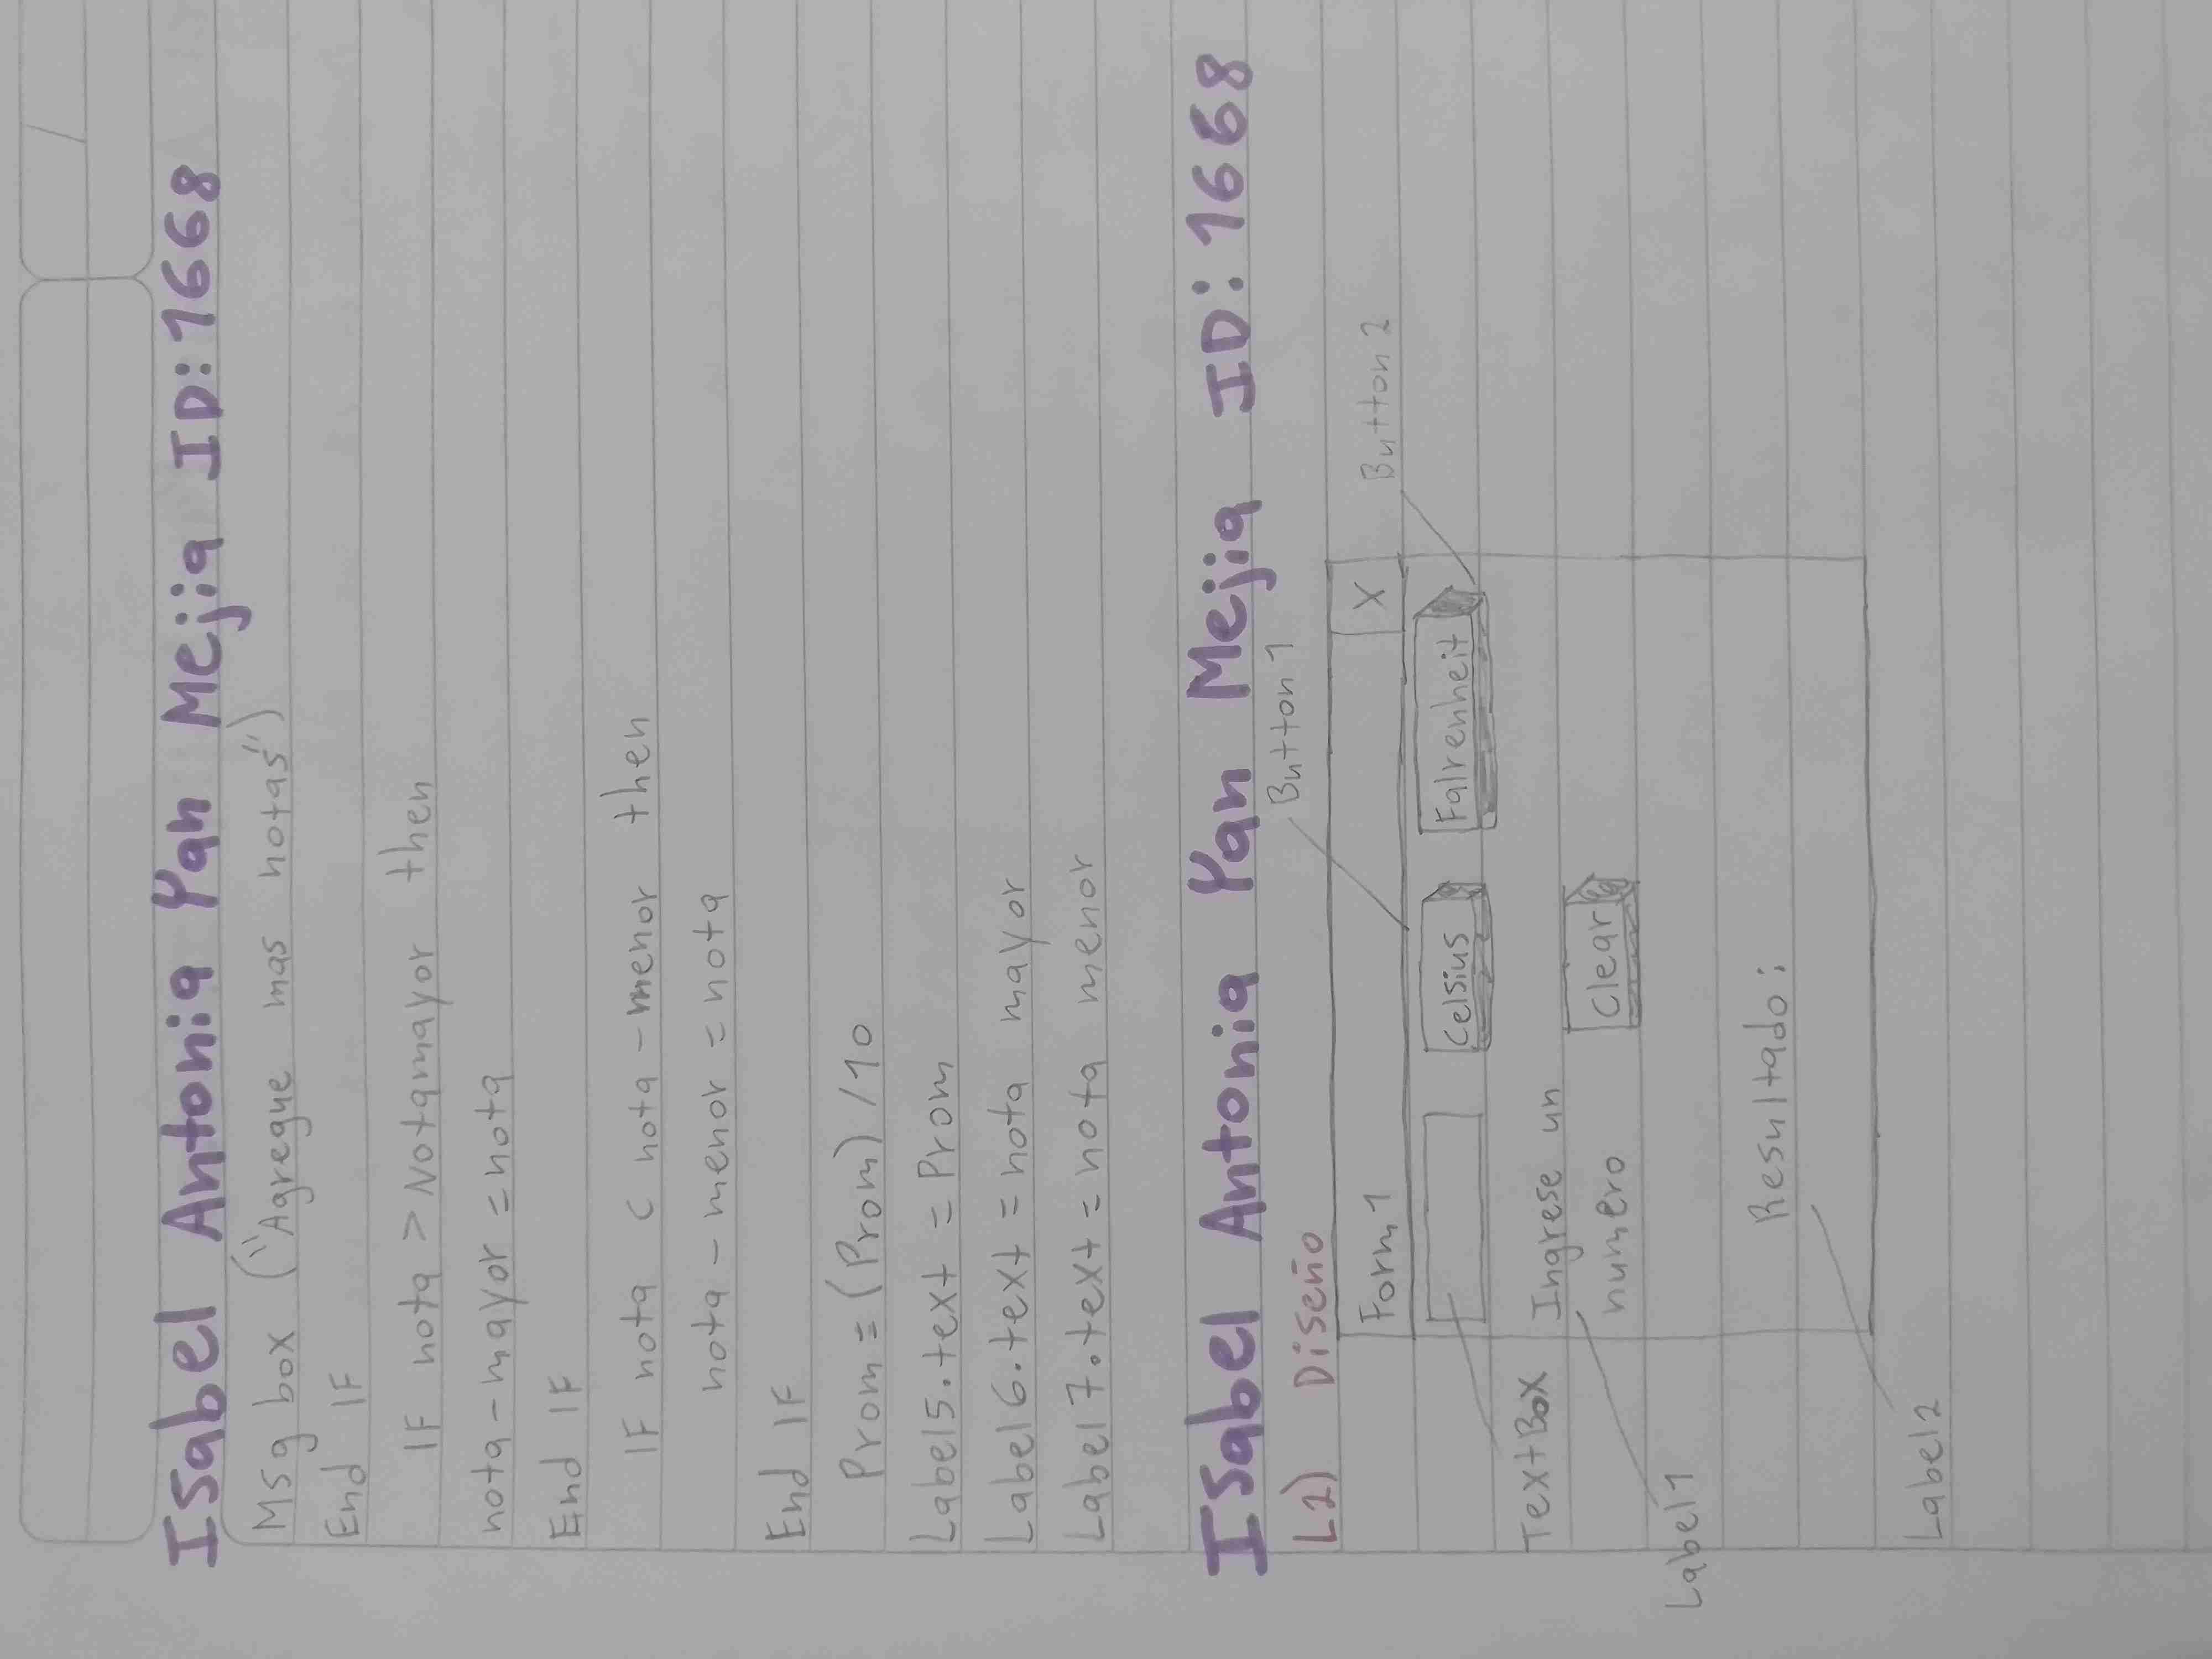 Isabel Antonia Yan Mejia ID:1668
Msg box ("Agregue mas notas")
End IF
IF nota > Notamayor then
nota-mayor = nota
End IF
IF nota < nota-menor then
nota-menor = nota
End IF
Prom = (Prom)/10
Label5.text = Prom
Label6.text = nota mayor
Label7.text = nota menor
Isabel Antonia Yan Mejia ID:1668
L2) Diseño
Button1
Button2
Form1 X
Celsius Falrenheit
TextBox
Ingrese un
numero
Clear
Label1
Resultado:
Label2